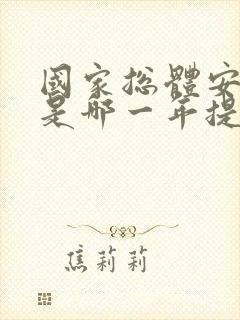 國家總體安
是哪一年提
焦莉莉